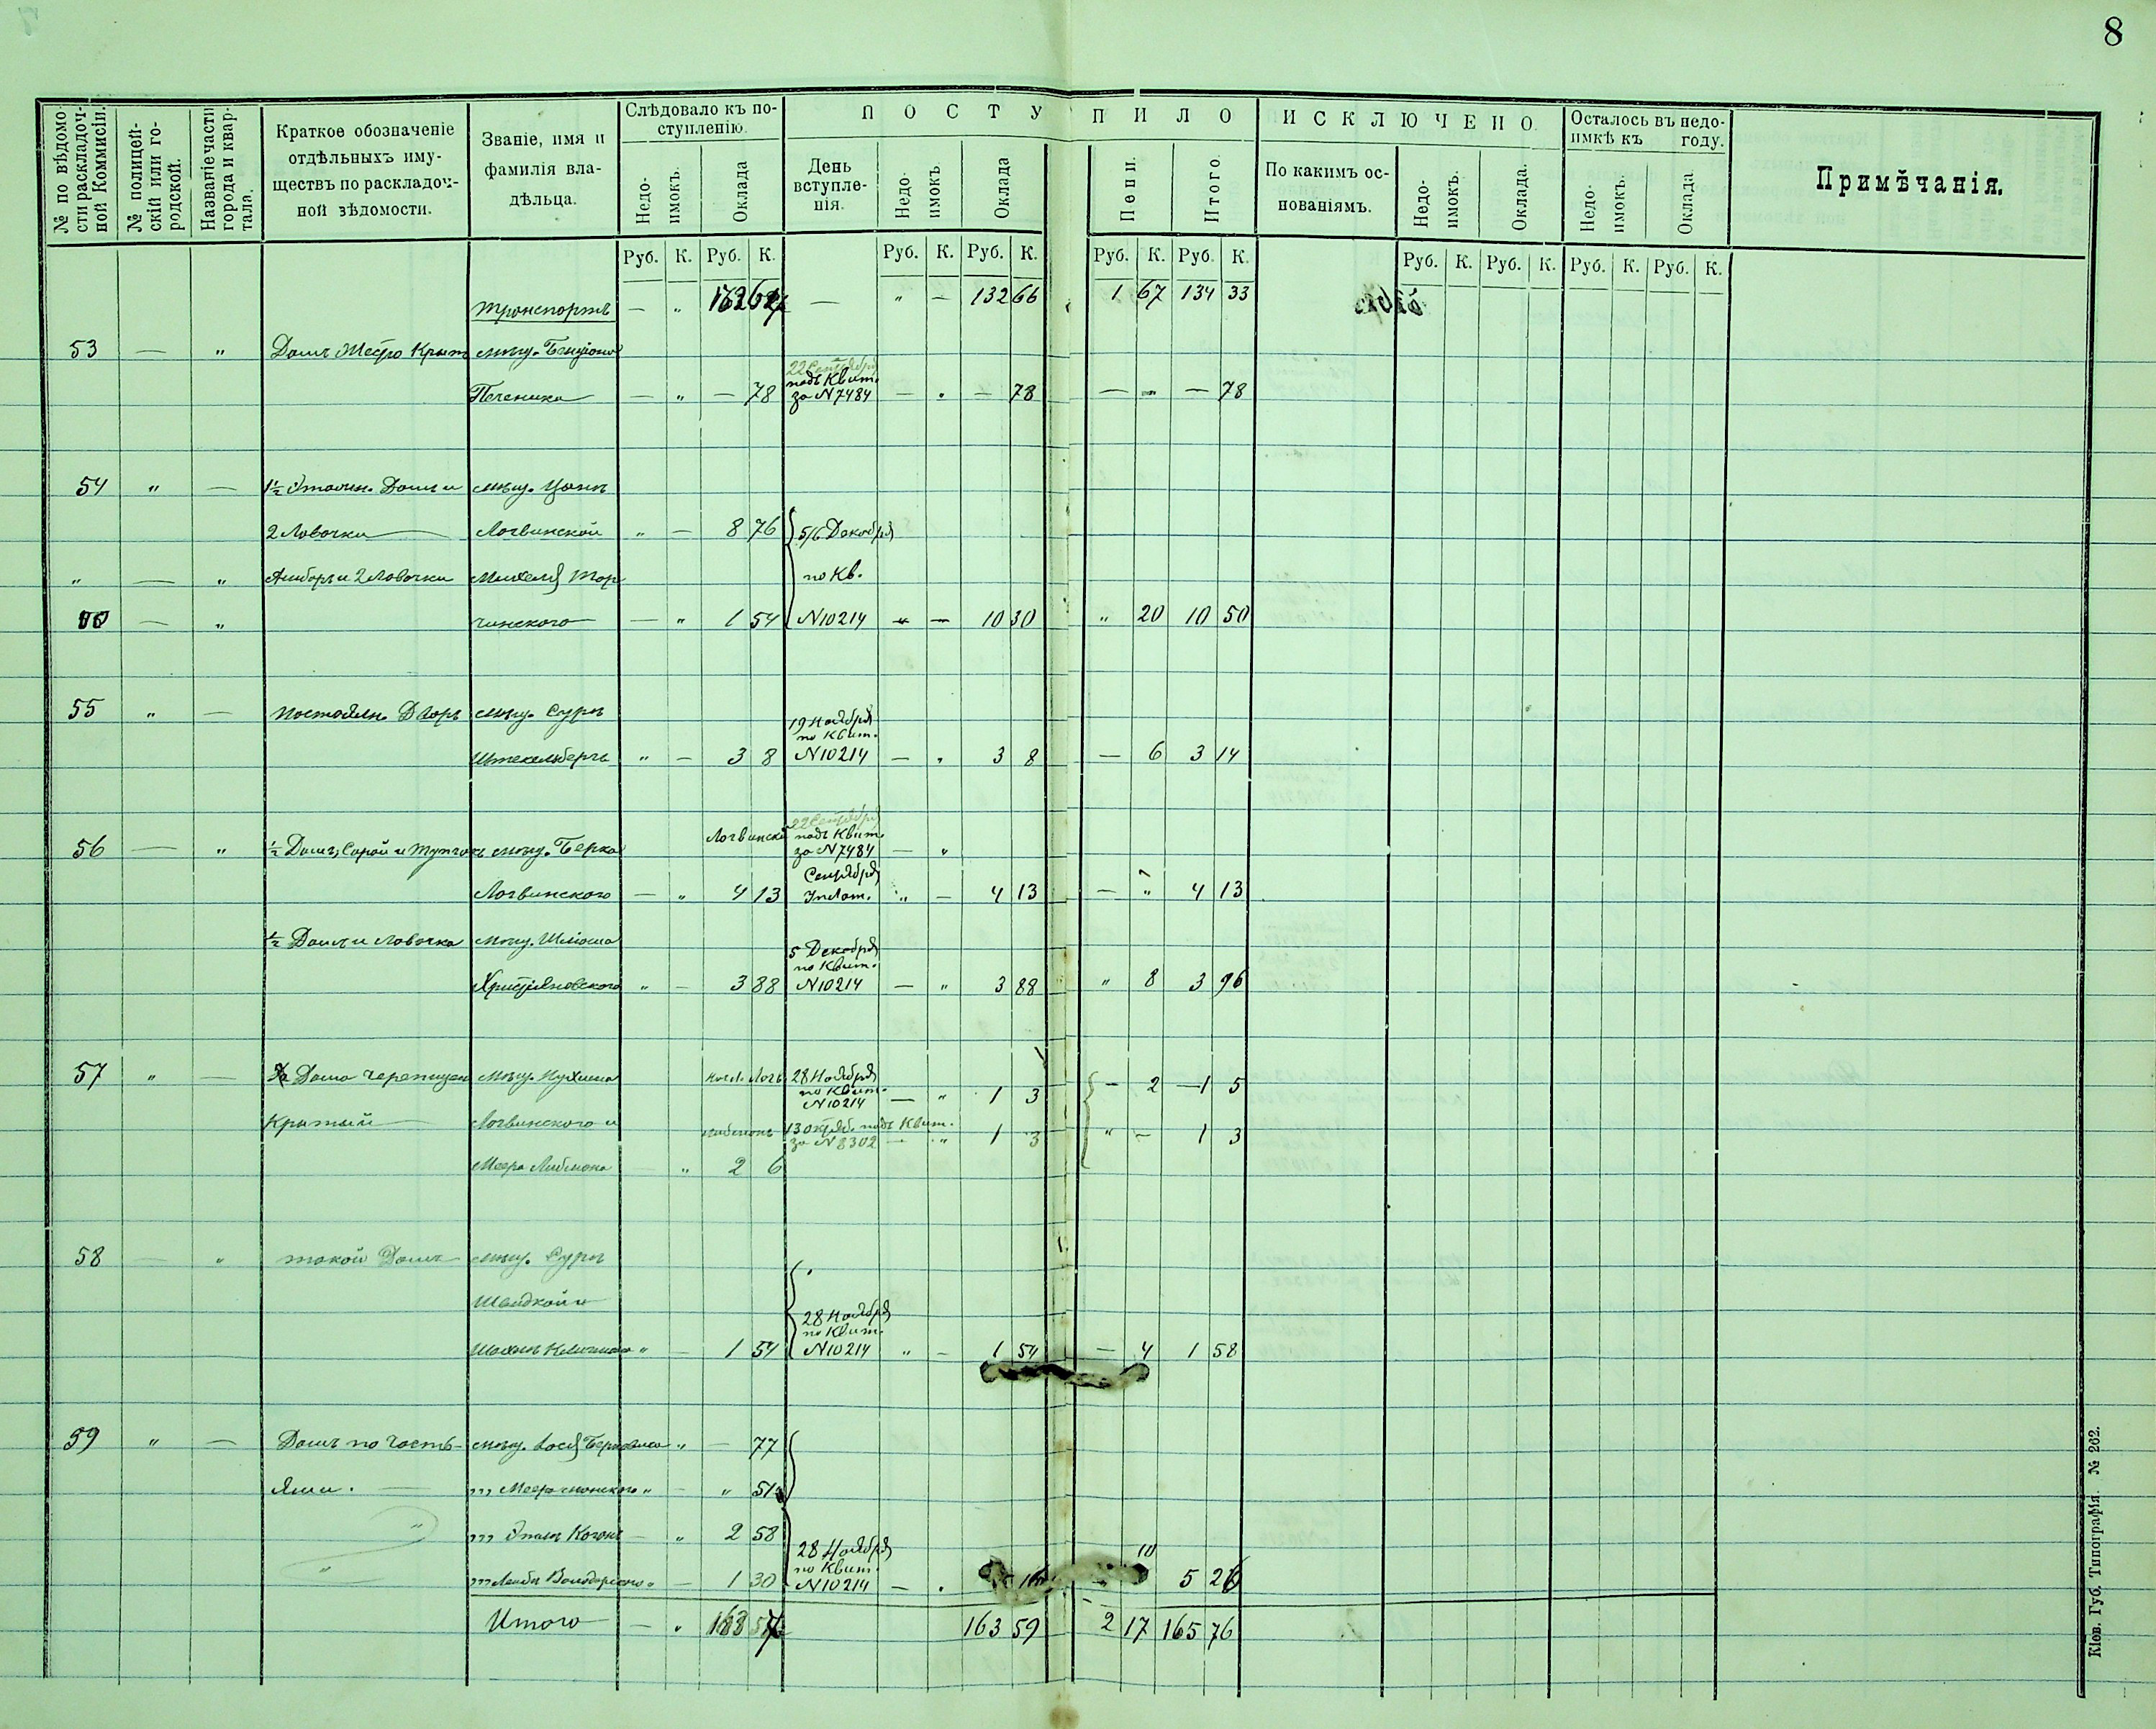 8
№ по вѣдомости раскладочной Коммисіи.
№ полицейскій или городской.
Названіе части города и квартала.
Краткое обозначеніе отдѣльныхъ имуществъ по раскладочной вѣдомости.
Званіе, имя и фамилія владѣльца.
Слѣдовало къ поступленію.
Недоимокъ. Оклада
ПОСТУПИЛО
День вступленія. Недоимокъ. Оклада Пени. Итого.
ИСКЛЮЧЕНО.
По какимъ основаніямъ. Недоимокъ. Оклада.
Осталось въ недоимкѣ къ году.
Недоимокъ. Оклада
Примѣчанія.
Руб. К. Руб. К. Руб. К. Руб. К. Руб. К. Руб. К. Руб. К. Руб. К. Руб. К. Руб. К.
Транспортъ — „ — „ — 132 66 1 67 134 33
53 — „ Домъ мѣщ.
22 Сентября
подъ Квит.
Печеника — „ — 78 за N 7484 — „ — 78 — „ — 78
54 „ — 1½ Этажн. Домъ и мѣщ.
2 Лавочки Логвинской „ — 8 76 5/6 Декабря
„ — „ Амбаръ и 2 Лавочки Михеля Тор по Кв.
— „ чинского — „ 1 54 N 10214 „ — 10 30 „ 20 10 50
55 „ — Постоялн. Дворъ мѣщ. Сура
19 Ноября
по Квит.
Штекельберга „ — 3 8 N 10214 — „ 3 8 — 6 3 14
22 Сентября
Логвинск подъ Квит.
56 — „ ½ Домъ, Сарай и мѣщ. Берка за N 7484 — „
Сентября
Логвинского — „ 4 13 „ — 4 13 — „ 4 13
½ Домъ и Лавочка мѣщ.
5 Декабря
по Квит.
Христіяновского „ — 3 88 N 10214 — „ 3 88 „ 8 3 96
57 „ — Дома черепицею мѣщ. Нухима 28 Ноября
по Квит.
N 10214 — „ 1 3 — 2 — 1 5
Крытый Логвинского и 13 октяб. подъ Квит.
за N 8302 — „ 1 3 „ — 1 3
Меера Либмана — „ 2 6
58 — „ такой Домъ мѣщ. Сура
Швидкой и
28 Ноября
по Квит.
„ — 1 54 N 10214 „ — 1 54 — 4 1 58
59 „ — Домъ по часть- мѣщ. „ — 77
ями. „ — „ 51
„ Когонъ — „ 2 58
28 Ноября 10
по Квит.
„ — 1 30 N 10214 — „ 5 26
Итого — „ 163 59 2 17 165 76
Кіев. Губ. Типографія. № 262.